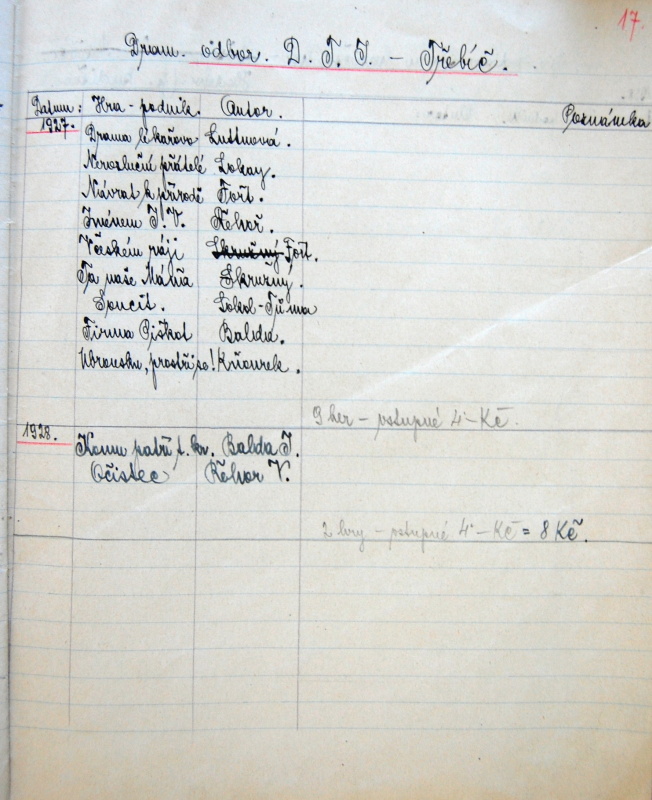 17.
Dram. odbor. D. T. J. – Třebíč.
Datum: Hra - podnik. Autor. Poznámka
1927. Drama lékařovo Luttnová.
Nerozluční přátelé Lokay.
Návrat k přírodě Fořt.
Jménem J. V. Řehoř.
V českém ráji Skružný Fořt.
Ta naše Máňa Skružný.
Soucit. Sokol-Tůma
Firma Piškot Balda.
Ubrousku, prostři se! Kňourek.
9 her – vstupné 4·– Kč.
1928. Komu patří t. kr. Balda J.
Očistec Řehoř V.
2 hry – vstupné 4·– Kč = 8 Kč.